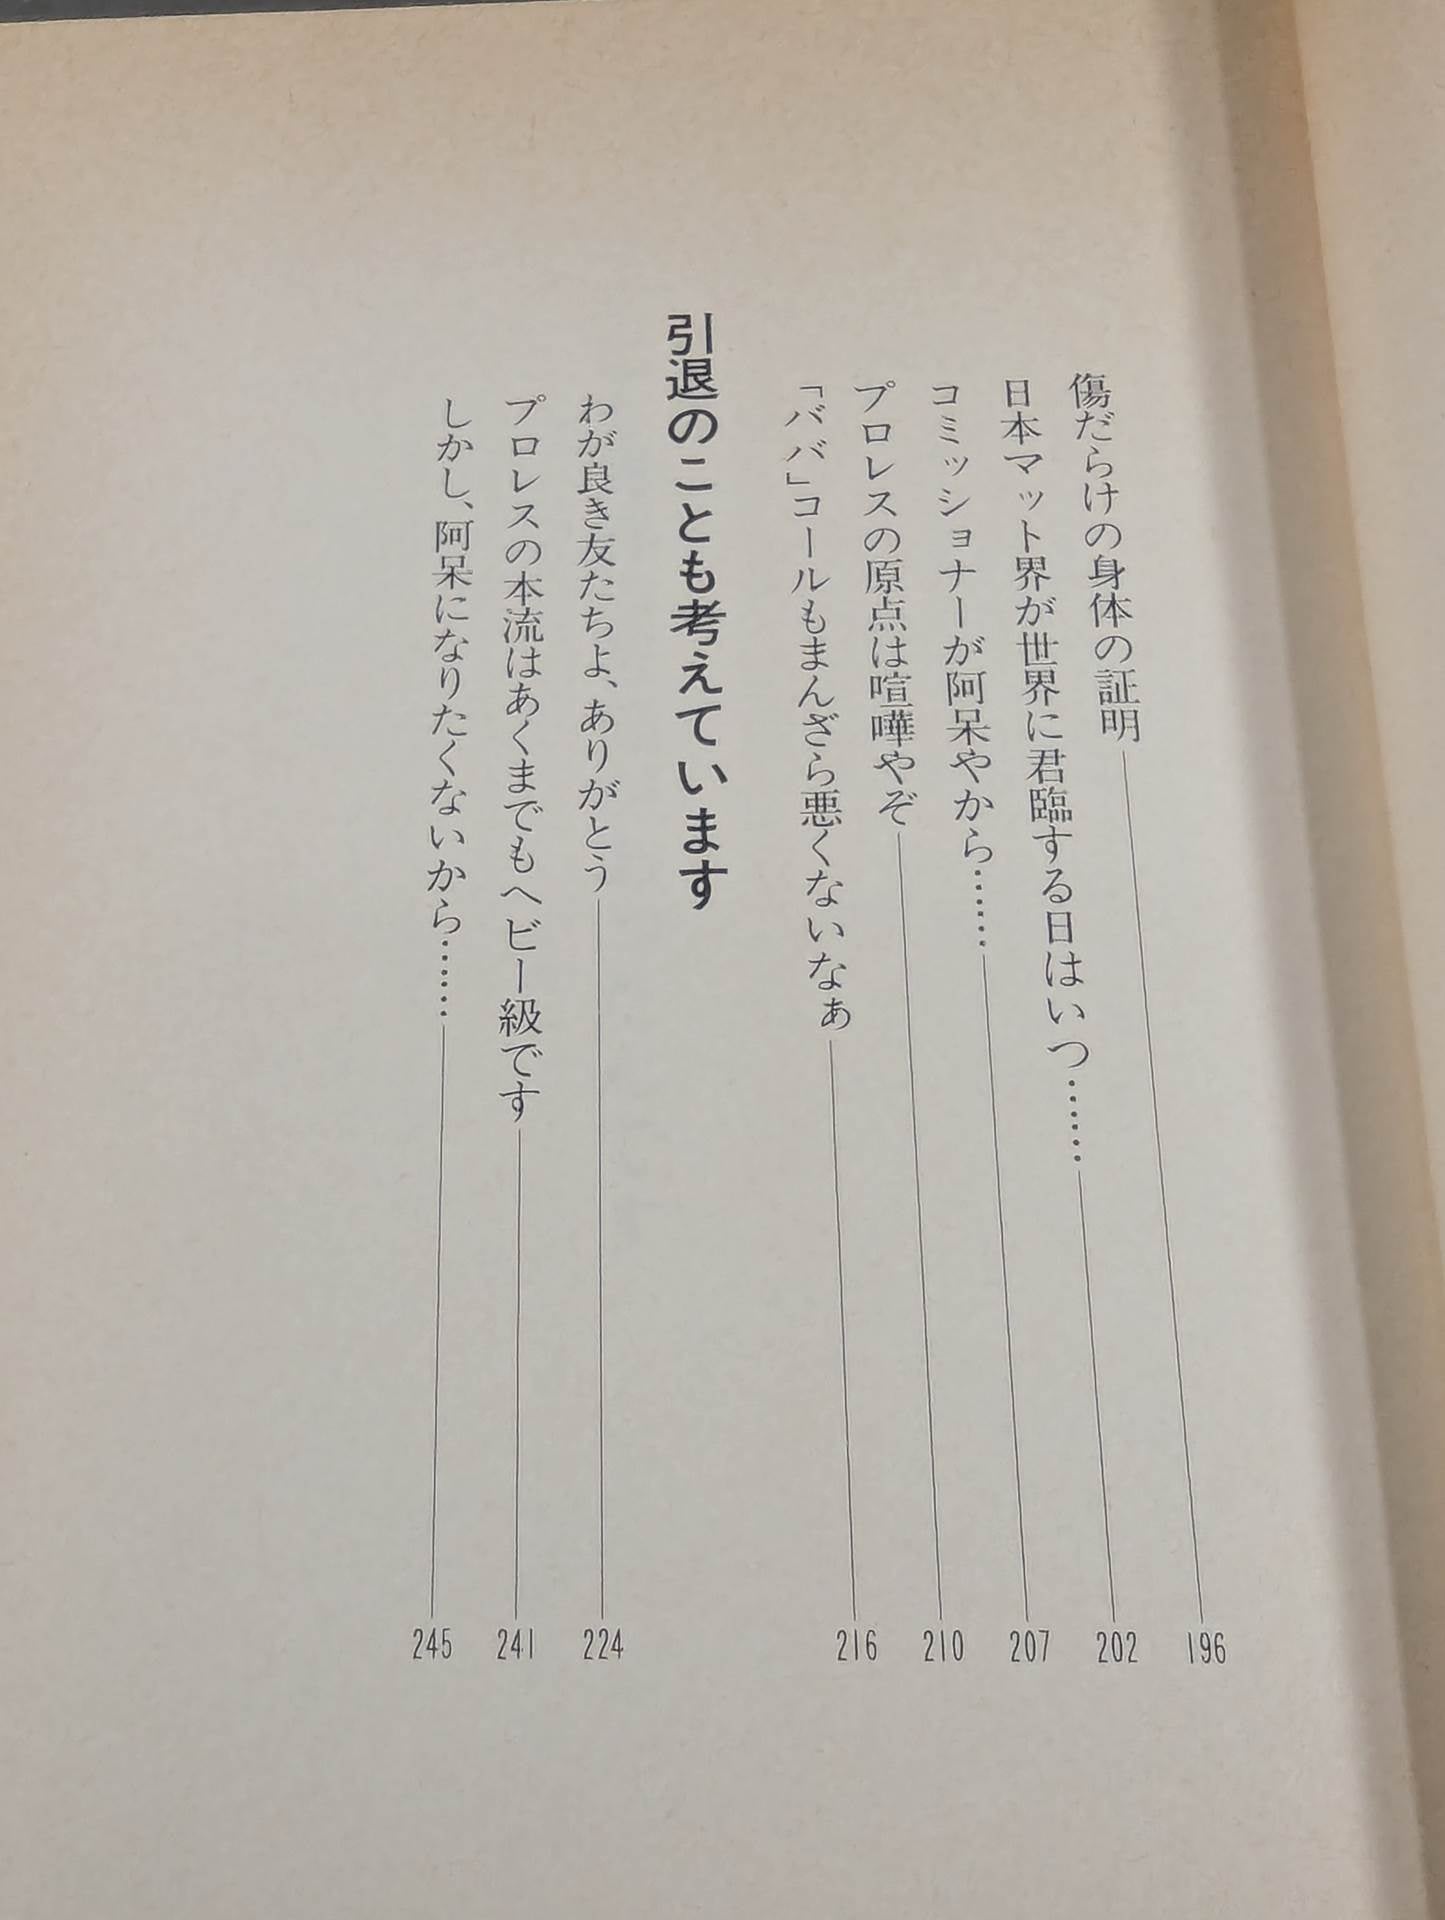 傷だらけの身体の証明 196
日本マット界が世界に君臨する日はいつ…… 202
コミッショナーが阿呆やから…… 207
プロレスの原点は喧嘩やぞ 210
「ババ」コールもまんざら悪くないなぁ 216
引退のことも考えています
わが良き友たちよ、ありがとう 224
プロレスの本流はあくまでもヘビー級です 241
しかし、阿呆になりたくないから…… 245